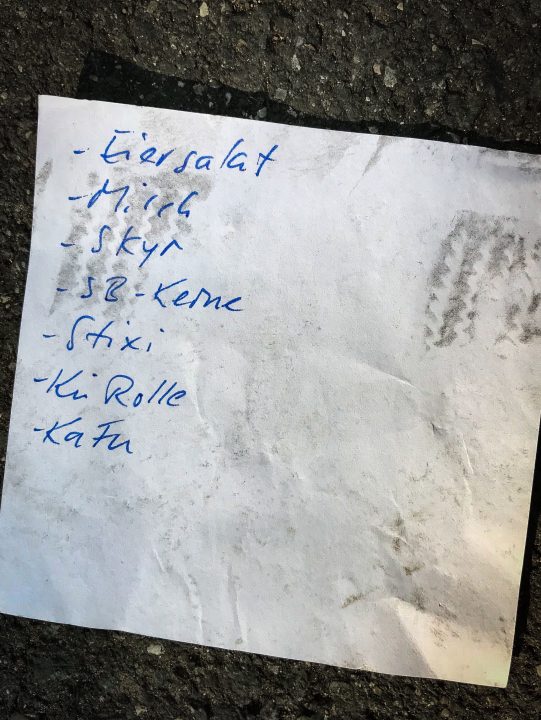 - Eiersalat
- Milch
- Skyr
- SB-Kerne
- Stixi
- Kü Rolle
- KaFu